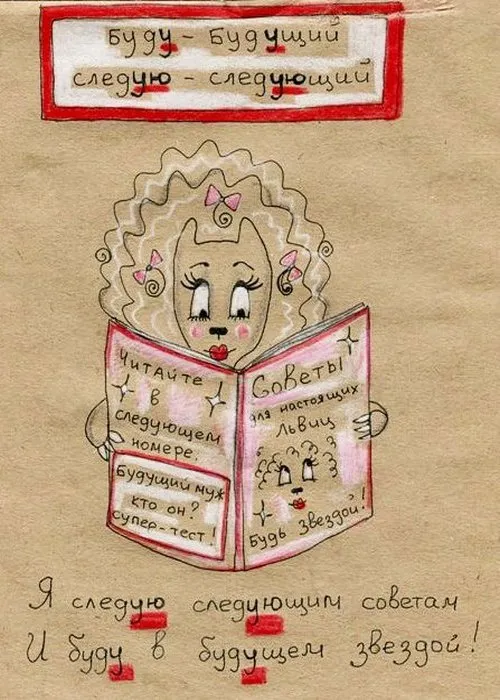 Буду - Будущий
следую - следующий
Читайте
в
следующем
номере:
Будущий муж
кто он?
супер-тест!
Советы
для настоящих
львиц
Будь звездой!
Я следую следующим советам
И буду в будущем звездой!